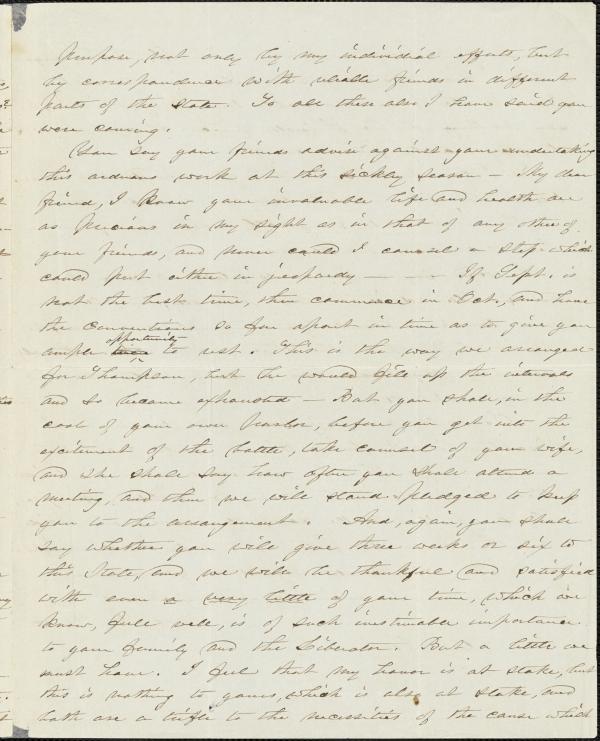 purpose, not only by my individial efforts, but
by correspondence with reliable friends in different
parts of the State. To all these also I have said you
were coming.
You say your friends advise against your undertaking
this arduous work at this sickly season — My dear
friend, I know your invaluable life and health are
as precious in my sight as in that of any other of
your friends, and never could I counsel a step which
could put either in jeopardy — — - If Sept. is
not the best time, then commence in Oct, and have
the conventions so far apart in time as to give you
ample opportunity to rest. This is the way we arranged
for Thompson, but he would fill up the intervals
and so became exhausted — But you shall, in the
cool of your own parlor, before you get into the
excitement of the battle, take counsel of your wife,
and she shall say how often you shall attend a
meeting, and then we will stand pledged to keep
you to the arrangement. And, again, you shall
say whether you will give three weeks or six to
this State, and we will be thankful and satisfied
with even a very little of your time, which we
know, full well, is of such inestimable importance
to your family and the Liberator. But a little we
must have. I feel that my honor is at stake, but
this is nothing to yours, which is also at stake, and
both are a trifle to the necessities of the cause which